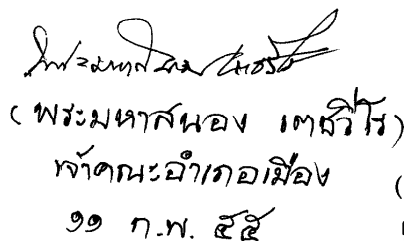 (พระมหาสนอง เตชวีโร)
เจ้าคณะอำเภอเมือง
๑๑ ก.พ. ๕๕